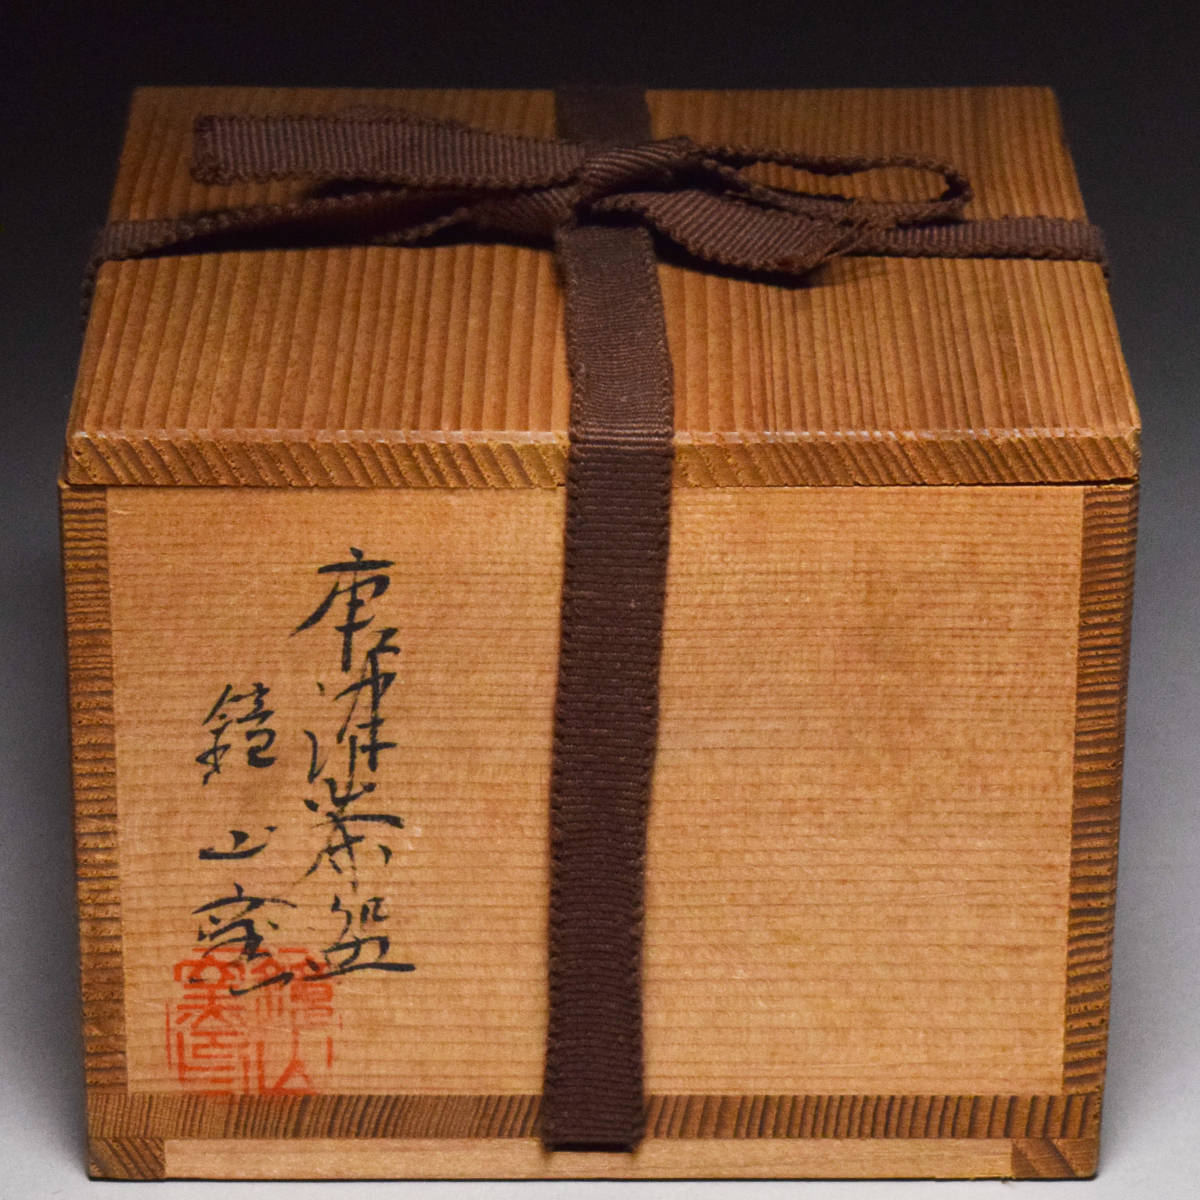 唐津茶盌
鏡山窯
鏡山窯印